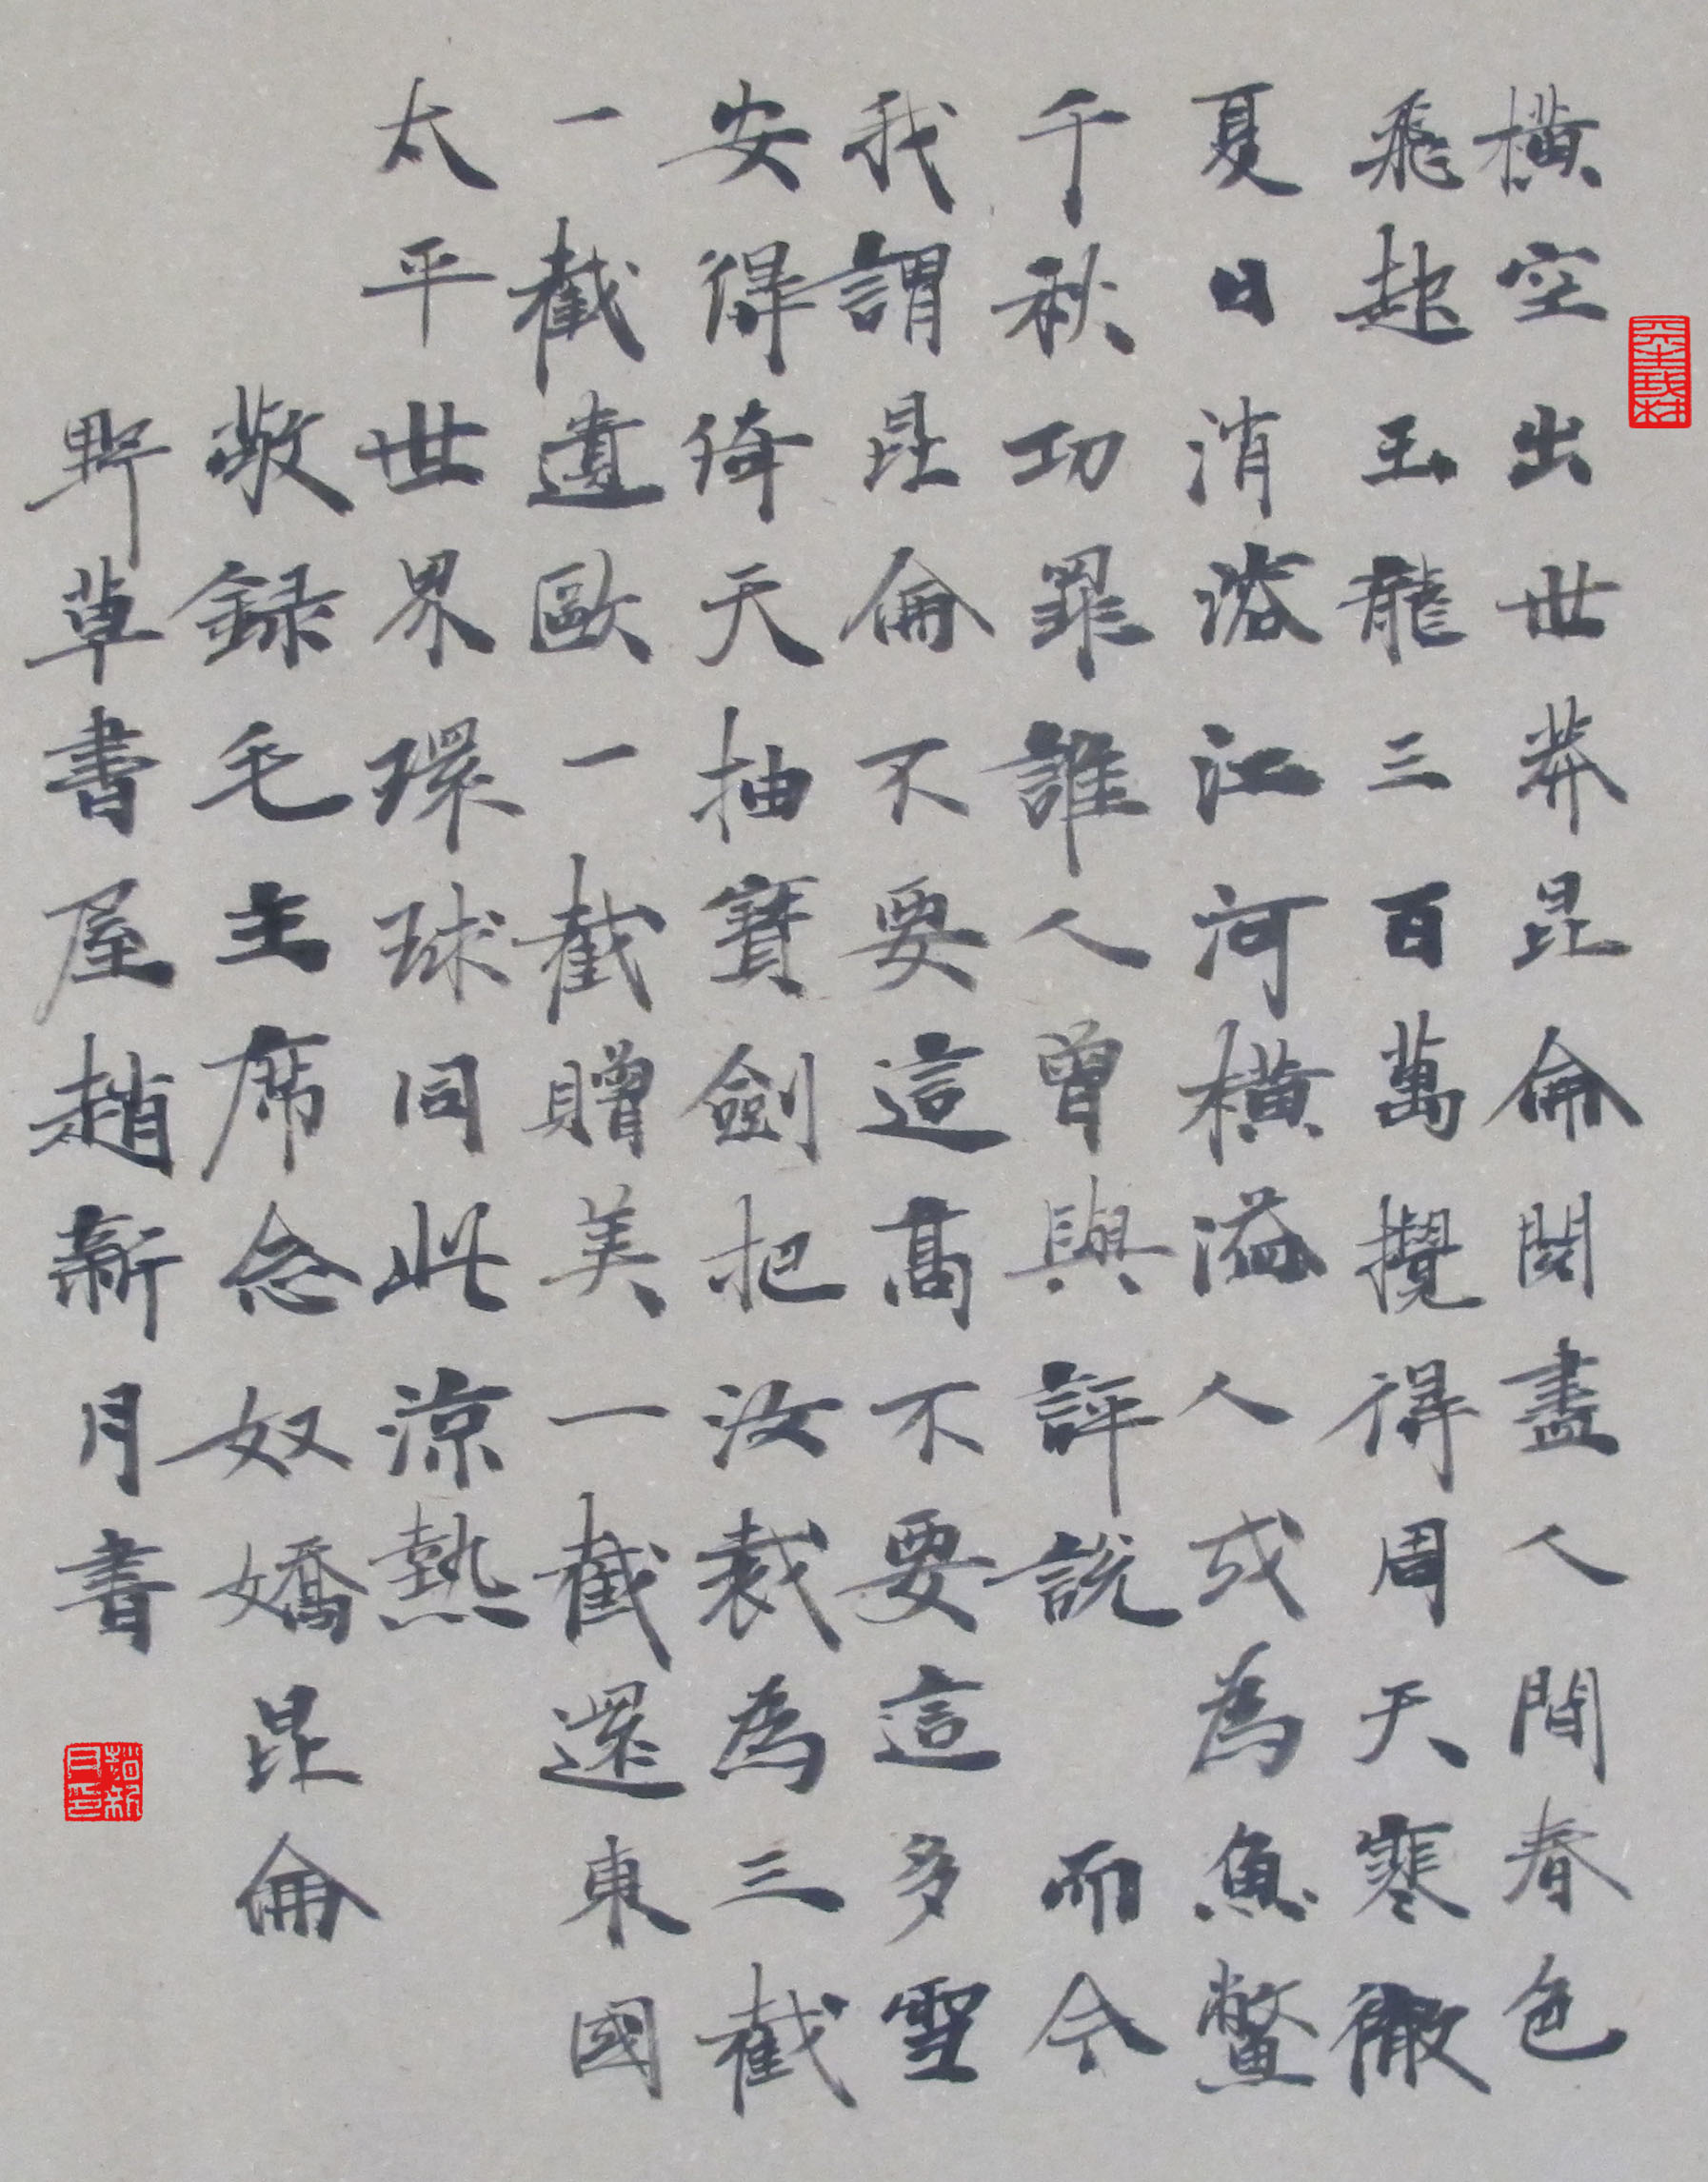 橫空出世莽昆侖閱盡人間春色
飛起玉龍三百萬攪得周天寒徹
夏日消溶江河橫溢人或為魚鱉
千秋功罪誰人曾與評說 而今
我謂昆侖不要這高不要這多雪
安得倚天抽寶劍把汝裁為三截
一截遺歐一截贈美一截還東國
太平世界環球同此涼熱
敬錄毛主席念奴嬌昆侖
野草書屋趙新月書
趙新月印